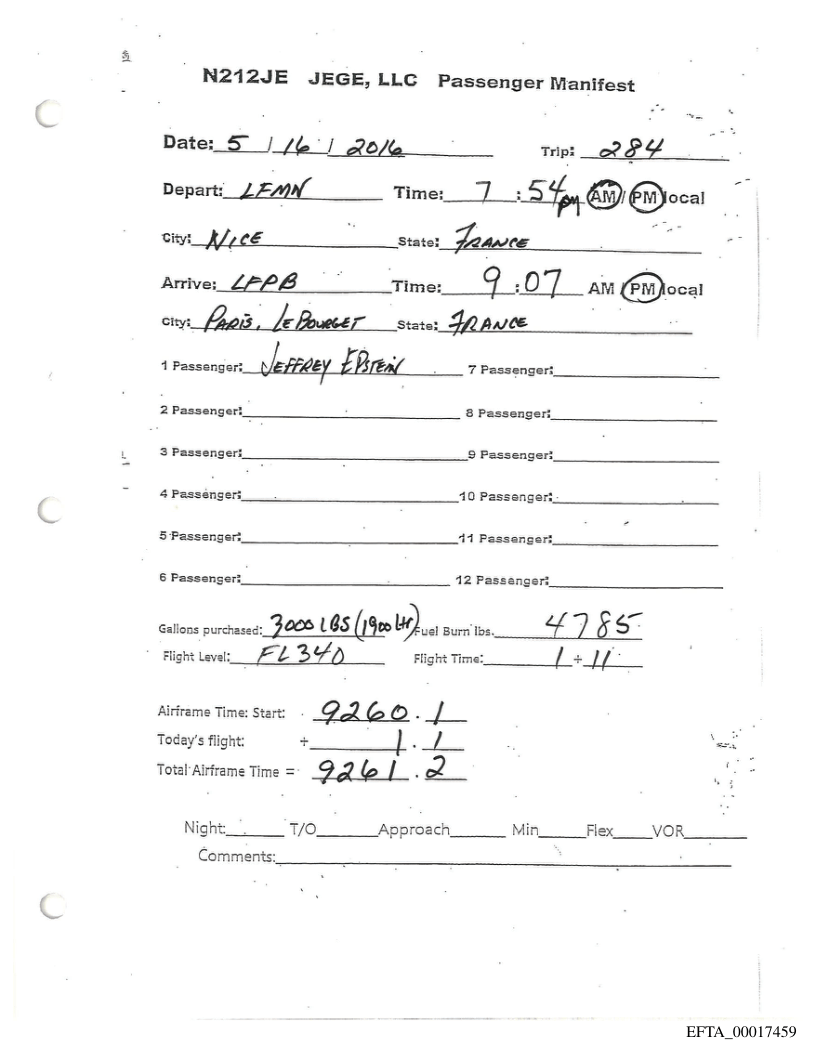 N212JE JEGE, LLC Passenger Manifest
Date: 5 / 16 / 2016 Trip: 284
Depart: LFMN Time: 7 : 54 pm AM / PM local
City: NICE State: FRANCE
Arrive: LFPB Time: 9 : 07 AM PM local
City: PARIS, LE BOURGET State: FRANCE
1 Passenger: JEFFREY EPSTEIN 7 Passenger:
2 Passenger: 8 Passenger:
3 Passenger: 9 Passenger:
4 Passenger: 10 Passenger:
5 Passenger: 11 Passenger:
6 Passenger: 12 Passenger:
Gallons purchased: 3000 LBS (1900 Ltr) Fuel Burn lbs. 4785
Flight Level: FL 340 Flight Time: 1 + 11
Airframe Time: Start: 9260.1
Today's flight: + 1.1
Total Airframe Time = 9261.2
Night: T/O Approach Min Flex VOR
Comments:
EFTA_00017459